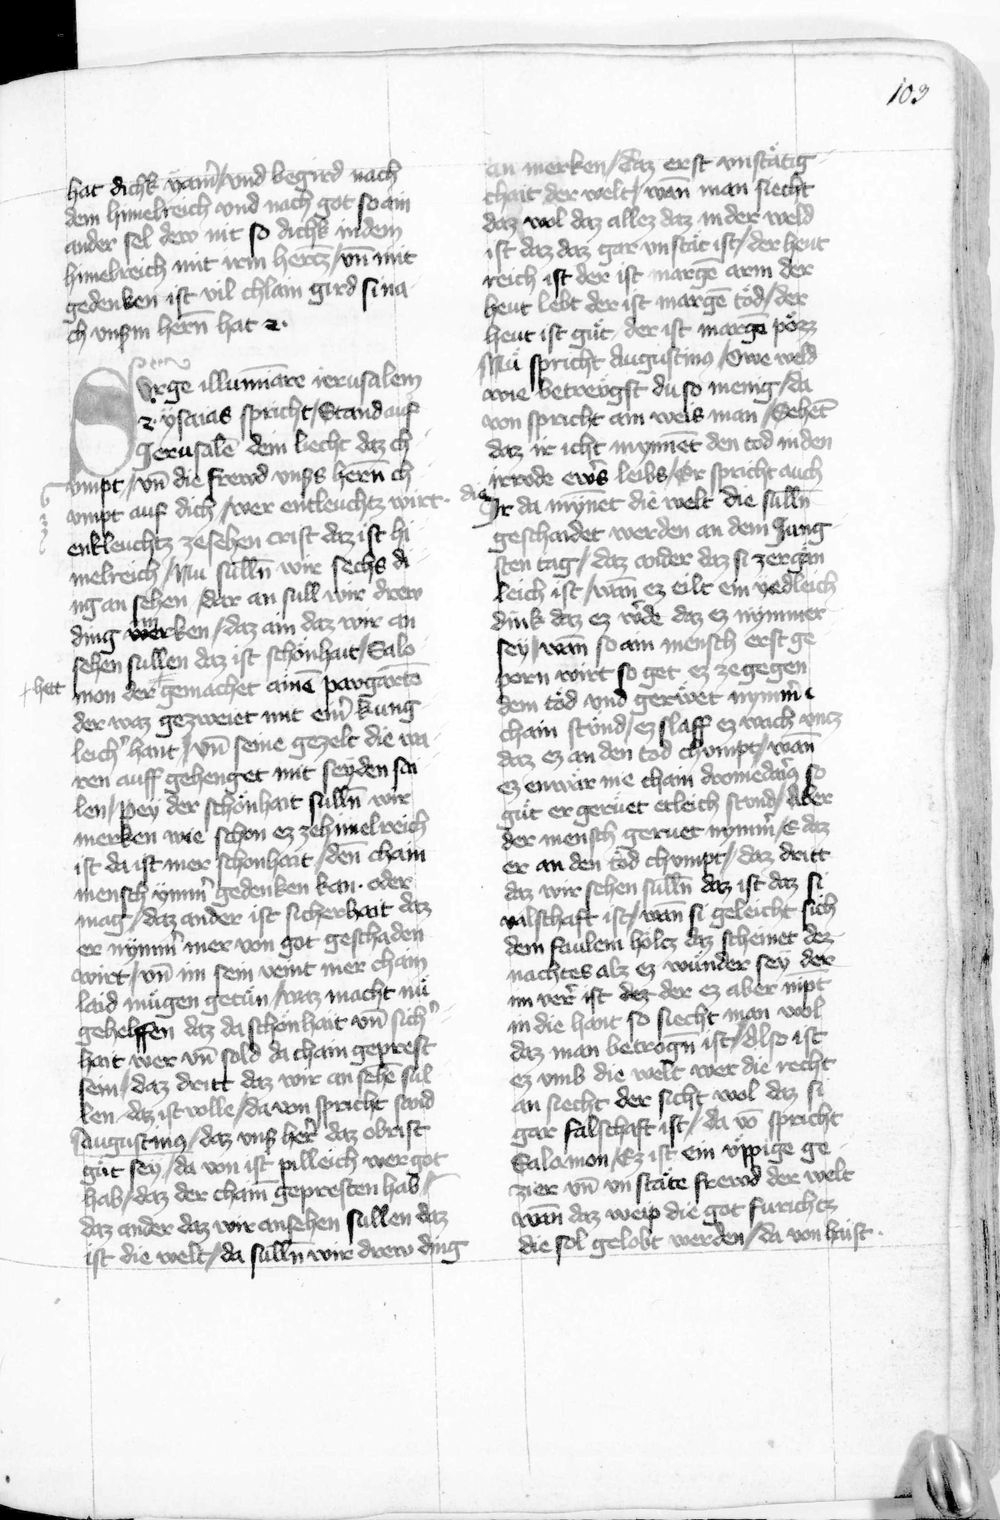 103
hat dichk yam̄ / vnd begird nach
dem himelreich vnd nach got so ain
ander sel dew nit so dichk in dem
himelreich mit irm hertz̄ / vn̄ mit
gedenken ist vil chlain gird si na
ch vnßm hern̄ hat ꝛ.
Surge illumiāre ierusalem
ꝛ ysaias spricht / Stand auf
Jerusalē dein liecht daz ch
vmpt / vn̄ die frewd vnßs hern̄ ch
vmpt auf dich / wer entleuchtz wirt.
enkleuchtz zesehen crist daz ist hi
melreich / Nu sulln̄ wir sechs di
ng an sehen / dar an sull wir drew
ding merken / daz ain daz wir an
sehen sullen daz ist schönhait / Salo
+ hett
mon der + gemachet ainē pavgartē
der waz gezweiet mit eim̄ kung
leich̾ hant / vn̄ seine gezelt die wa
ren auff gehenget mit seyden sai
len / Pey der schönhait sulln̄ wir
merken wie schon ez ze himelreich
ist da ist mer schonhait / den̄ chain
mensch ymm̾ gedenken kan. oder
mag / daz ander ist sicherhait daz
er nymm̾ mer von got geschaden
wirt / vn̄ im sein veint mer chain
laid mügen getün / waz macht nü
gehelffen daz da schönhait vn̄ sich̾
hait wer vn̄ sold da chain geprest
sein / daz dritt daz wir an sehē sul
len daz ist volle / da von spricht sand
Augustinus / daz vnß her̄ daz obrist
güt sey / da von ist pilleich wer got
hab / daz der chain̄ gepresten hab /
daz ander daz wir ansehen sullen daz
ist die welt / da sulln̄ wir drew ding
an merken / Daz erst vnstätig
chait der welt / wan̄ man siecht
daz wol daz allez daz in der weld
ist daz daz gar vnstät ist / der heut
reich ist der ist margē arm der
heut lebt der ist margē töd / der
heut ist güt der ist margē pözz
Nu spricht Augustinus / Owe weld
wie betrevgst du so menig / da
von spricht ain weis man / Sehēt
daz ir icht mynnet den tod in den
irrode ew̾s leibs / Er spricht auch
die
Ir da mynnet die welt die sulln̄
geschaidet werden an dem Jung
sten tag / daz ander daz si zergän
leich ist / wan̄ ez eilt ein yedleich
dink daz ez w̾de daz ez nymmer
sey / wan̄ so ain mensch erst ge
porn wirt so get ez ze gegen
dem töd vnd gerüet nymm̾
chain stund / ez slaff ez wach vncz
daz ez an den tod chvmpt / wan̄
ez enwär nie chain dromedar̾ so
güt er gerüet etleich stvnd / Aber
der mensch geruet nymm̾ / E daz
er an den töd chvmpt / daz dritt
daz wir sehen sulln̄ daz ist daz si
valschaft ist / wan̄ si geleicht sich
dem faulem holcz daz scheinet dez
nachtes alz ez wunder sey der
im ver̾ ist dez der ez aber nīpt
in die hant so siecht man wol
daz man betrogn̄ ist / Also ist
ez vmb die welt wer die recht
an siecht der sicht wol daz si
gar falschaft ist / da vō spricht
Salamon / Ez ist ein vppige ge
zier vn̄ vn stäte frewd der welt
wan̄ daz weip die got furichtz
die sol gelobt werden / da von haist.